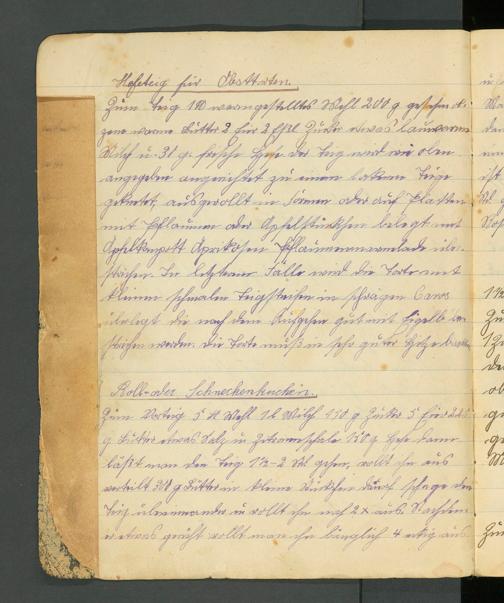 Hefeteig für Obsttorten.
Zum Teig 1 ℔ warmgestelltes Mehl 200 g
warme Butter 2 Eier 2 Eßl Zucker etwas lauwarme
Milch u. 30 gr. frische Hefe der Teig wird wie oben
angegeben angerührt zu einem lockren Teige
geknetet, ausgerollt in Formen oder auf Platten
mit Pflaumen oder Apfelstückchen belegt mit
Apfelkompott Aprikosen Pflaumenmarmelade
In letzterem Falle wird die Torte mit
kleinen schmalen Teigstreifen in schrägen Caros
überlegt die nach dem Aufgehen gut mit Eigelb
werden. die Torte muß in sehr guter Hitze
Roll- oder Schneckenkuchen.
Zum Vorteig 5 ℔ Mehl 1 l Milch 450 g Zucker 5 Eier
g Butter etwas Salz in Zitronenschale 150 g Hefe dann
läßt man den Teig 1½-2 Std. gehen, rollt ihn aus
verteilt g Butter in kleine Stückchen schlage den
Teig übereinander u rollt ihn noch 2x aus Nachdem
er etwas geruht rollt man ihn länglich 4 eckig aus